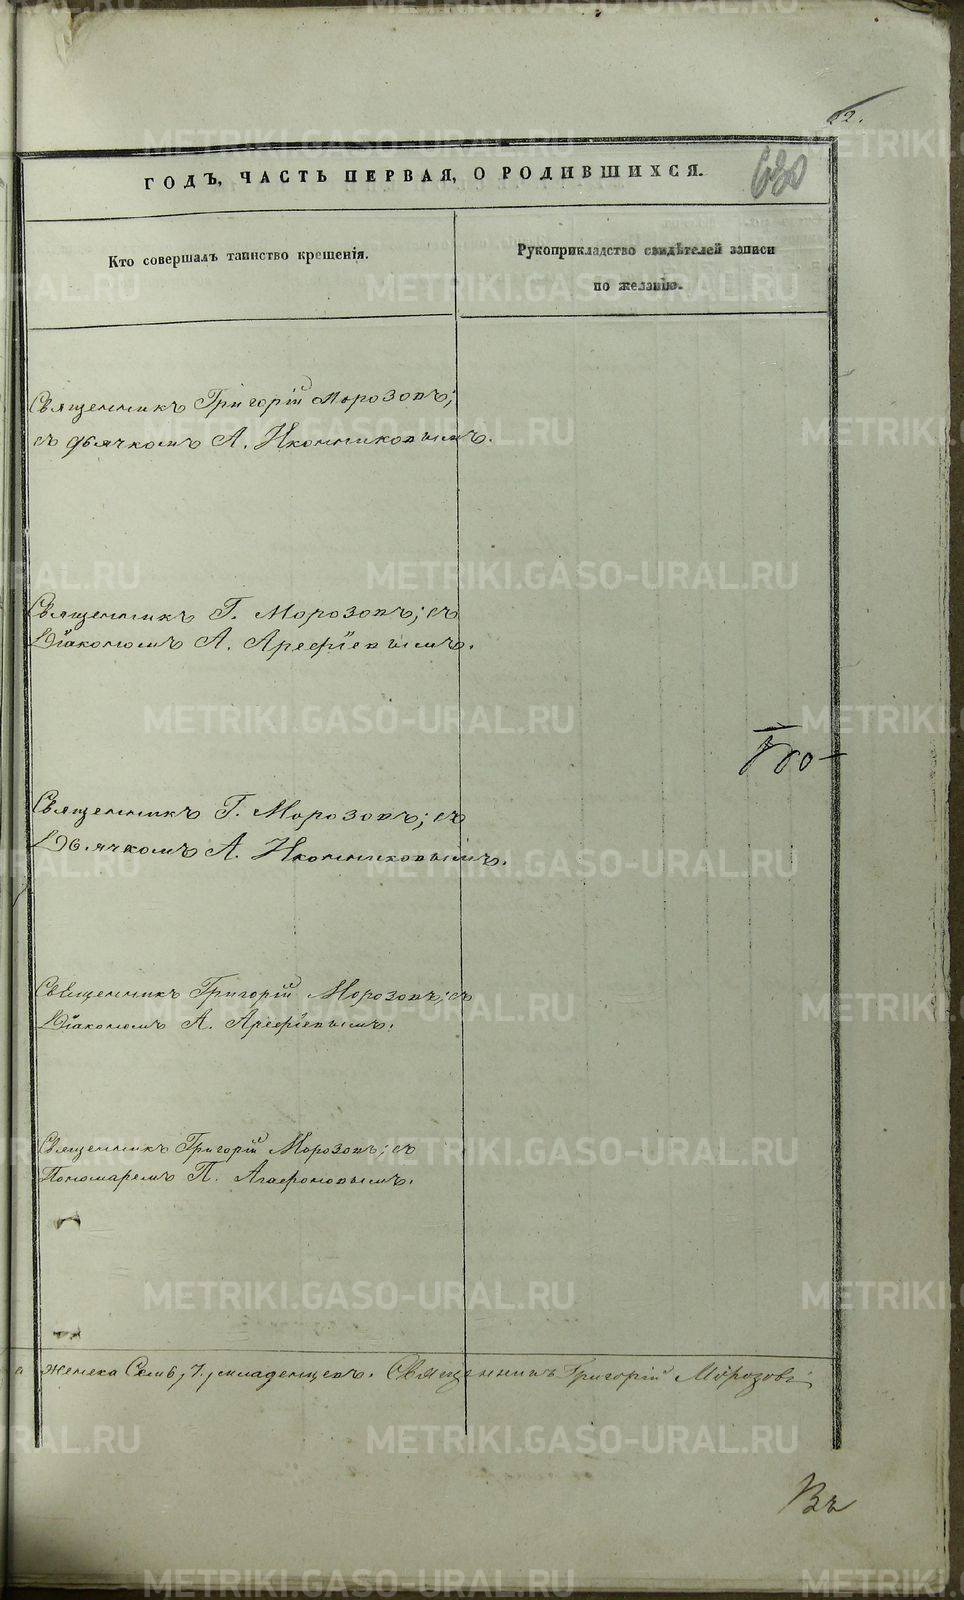 12.
630
ГОДЪ, ЧАСТЬ ПЕРВАЯ, О РОДИВШИХСЯ.
Кто совершалъ таинство крещенія.
Рукоприкладство свидѣтелей записи
по желанію.
Священникъ Григорій Морозовъ;
съ дьячкомъ А. Иконниковымъ.
Священникъ Г. Морозовъ; съ
Діакономъ А. Арефіевымъ.
Священникъ Г. Морозовъ; съ
Дьячкомъ А. Иконниковымъ.
Священникъ Григорій Морозовъ; съ
Діакономъ А. Арефіевымъ.
Священникъ Григорій Морозовъ; съ
Пономаремъ П. Агафоновымъ.
а женска Семь, 7, младенцевъ. Священникъ Григорій Морозовъ
Въ
METRIKI.GASO-URAL.RU